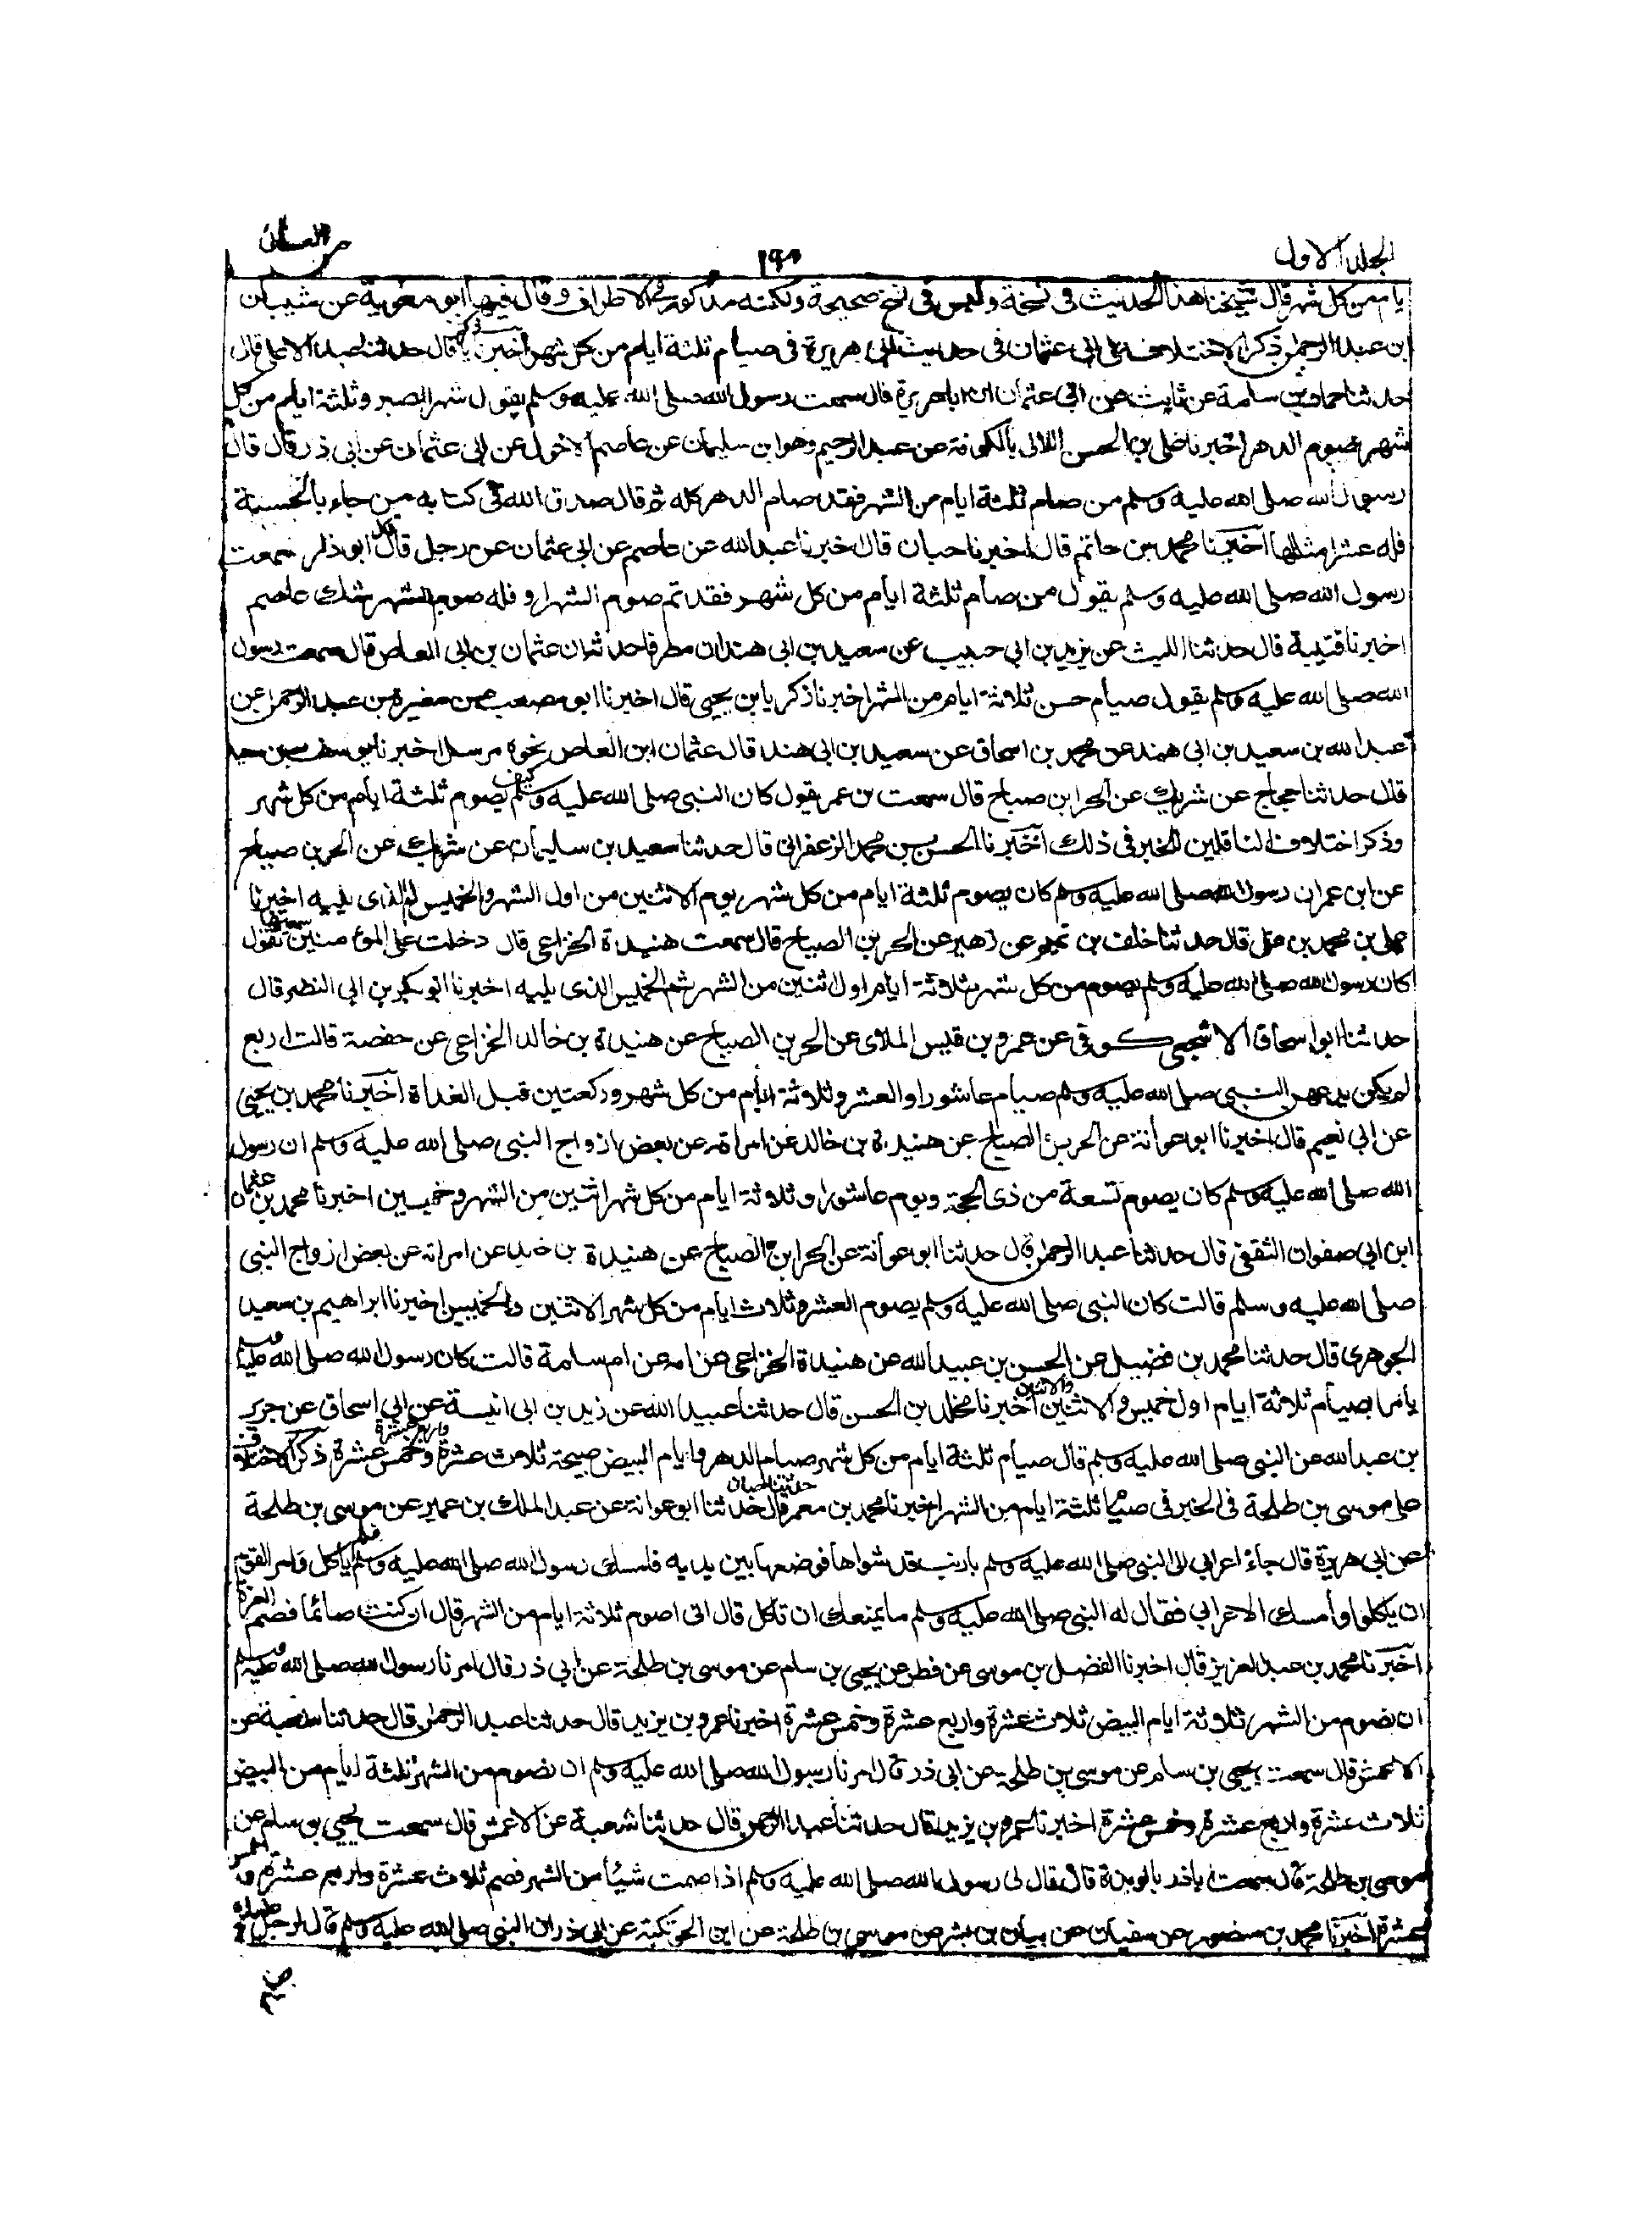 المجلد الاول
١٩٥
من النسائى
يام من كل شهر قال شيخنا هذا الحديث فى نسخة وليس فى نسخ صحيحة ولكنه مذكور فى الاطراف وقال فيها ابو معوية عن شيبان
ابن عبد الرحمن ذكر الاختلاف على ابى عثمان فى حديث ابى هريرة فى صيام ثلثة ايام من كل شهر اخبرنا زكريا قال حدثنا عبد الاعلى قال
حدثنا حماد بن سلمة عن ثابت عن ابى عثمان ان ابا هريرة قال سمعت رسول الله صلى الله عليه وسلم يقول شهر الصبر وثلثة ايام من كل
شهر صوم الدهر اخبرنا على بن الحسن اللانى بالكوفة عن عبد الرحيم وهو ابن سليمان عن عاصم الاحول عن ابى عثمان عن ابى ذر قال قال
رسول الله صلى الله عليه وسلم من صام ثلثة ايام من الشهر فقد صام الدهر كله ثم قال صدق الله فى كتابه من جاء بالحسنة
فله عشر امثالها اخبرنا محمد بن حاتم قال اخبرنا حبان قال اخبرنا عبد الله عن عاصم عن ابى عثمان عن رجل قال قال ابو ذر سمعت
رسول الله صلى الله عليه وسلم يقول من صام ثلثة ايام من كل شهر فقد تم صوم الشهر او فله صوم الشهر شك عاصم
اخبرنا قتيبة قال حدثنا الليث عن يزيد بن ابى حبيب عن سعيد بن ابى هند ان مطرفا حدثه ان عثمان بن ابى العاص قال سمعت رسول
الله صلى الله عليه وسلم يقول صيام حسن ثلاثة ايام من الشهر اخبرنا زكريا بن يحيى قال اخبرنا ابو مصعب عن مغيرة بن عبد الرحمن عن
عبد الله بن سعيد بن ابى هند عن محمد بن اسحاق عن سعيد بن ابى هند قال عثمان ابن العاص نحوه مرسل اخبرنا يوسف بن سعيد
قال حدثنا حجاج عن شريك عن الحر ابن صباح قال سمعت بن عمر يقول كان النبى صلى الله عليه وسلم يصوم ثلثة ايام من كل شهر كيف
وذكر اختلاف الناقلين للخبر فى ذلك اخبرنا الحسن بن محمد الزعفرانى قال حدثنا سعيد بن سليمان عن شريك عن الحر بن صباح
عن ابن عمر ان رسول الله صلى الله عليه وسلم كان يصوم ثلثة ايام من كل شهر يوم الاثنين من اول الشهر والخميس الذى يليه اخبرنا
على بن محمد بن على قال حدثنا خلف بن تميم عن زهير عن الحر بن الصباح قال سمعت هنيدة الخزاعى قال دخلت على ام المؤمنين سمعتها تقول
كان رسول الله صلى الله عليه وسلم يصوم من كل شهر ثلاثة ايام اول اثنين من الشهر ثم الخميس الذى يليه اخبرنا ابو بكر بن ابى النضر قال
حدثنا ابو اسحاق الاشجعى كوفى عن عمرو بن قيس الملائى عن الحر بن الصباح عن هنيدة بن خالد الخزاعى عن حفصة قالت اربع
لم يكن يدعهن النبى صلى الله عليه وسلم صيام عاشورا والعشر وثلاثة ايام من كل شهر وركعتين قبل الغداة اخبرنا محمد بن يحيى
عن ابى نعيم قال اخبرنا ابو عوانة عن الحر بن الصباح عن هنيدة بن خالد عن امراته عن بعض ازواج النبى صلى الله عليه وسلم ان رسول
الله صلى الله عليه وسلم كان يصوم تسعة من ذى الحجة ويوم عاشورا وثلاثة ايام من كل شهر اثنين من الشهر وخميسين اخبرنا محمد بن عثمان
ابن ابى صفوان الثقفى قال حدثنا عبد الرحمن قال حدثنا ابو عوانة عن الحر ابن الصباح عن هنيدة بن خالد عن امراته عن بعض ازواج النبى
صلى الله عليه وسلم قالت كان النبى صلى الله عليه وسلم يصوم العشر وثلاث ايام من كل شهر الاثنين والخميس اخبرنا ابراهيم بن سعيد
الجوهرى قال حدثنا محمد بن فضيل عن الحسن بن عبيد الله عن هنيدة الخزاعى عن امه عن ام سلمة قالت كان رسول الله صلى الله عليه وسلم
يأمر بصيام ثلاثة ايام اول خميس والاثنين والاثنين اخبرنا مخلد بن الحسن قال حدثنا عبيد الله عن زيد بن ابى انيسة عن ابى اسحاق عن جرير
بن عبد الله عن النبى صلى الله عليه وسلم قال صيام ثلثة ايام من كل شهر صيام الدهر وايام البيض صبيحة ثلاث عشرة واربع عشرة وخمس عشرة ذكر الاختلاف
على موسى بن طلحة فى الخبر فى صيام ثلثة ايام من الشهر اخبرنا محمد بن معمر قال حدثنا حبان حدثنا ابو عوانة عن عبد الملك بن عمير عن موسى بن طلحة
عن ابى هريرة قال جاء اعرابى الى النبى صلى الله عليه وسلم بارنب قد شواها فوضعها بين يديه فامسك رسول الله صلى الله عليه وسلم فلم ياكل وامر القوم
ان يكلوا وأمسك الاعرابى فقال له النبى صلى الله عليه وسلم ما يمنعك ان تاكل قال انى اصوم ثلاثة ايام من الشهر قال ان كنت صائما فصم الغر
اخبرنا محمد بن عبد العزيز قال اخبرنا الفضل بن موسى عن فطر عن يحيى بن سلم عن موسى بن طلحة عن ابى ذر قال امرنا رسول الله صلى الله عليه وسلم
ان نصوم من الشهر ثلاثة ايام البيض ثلاث عشرة واربع عشرة وخمس عشرة اخبرنا عمرو بن يزيد قال حدثنا عبد الرحمن قال حدثنا شعبة عن
الاعمش قال سمعت يحيى بن سام عن موسى بن طلحة عن ابى ذر قال امرنا رسول الله صلى الله عليه وسلم ان نصوم من الشهر ثلثة ايام من البيض
ثلاث عشرة واربع عشرة وخمس عشرة اخبرنا عمرو بن يزيد قال حدثنا عبد الرحمن قال حدثنا شعبة عن الاعمش قال سمعت يحيى بن سلم عن
موسى بن طلحة قال سمعت ابا ذر بالربذة قال قال لى رسول الله صلى الله عليه وسلم اذا صمت شيئا من الشهر فصم ثلاث عشرة واربع عشرة وخمس
عشرة اخبرنا محمد بن منصور عن سفيان عن بيان بن بشر عن موسى بن طلحة عن ابن الحوتكية عن ابى ذر ان النبى صلى الله عليه وسلم قال لرجل عليك